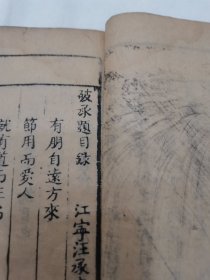 破承題目錄
江寧汪承
有朋自遠方來
節用而愛人
就有道而正